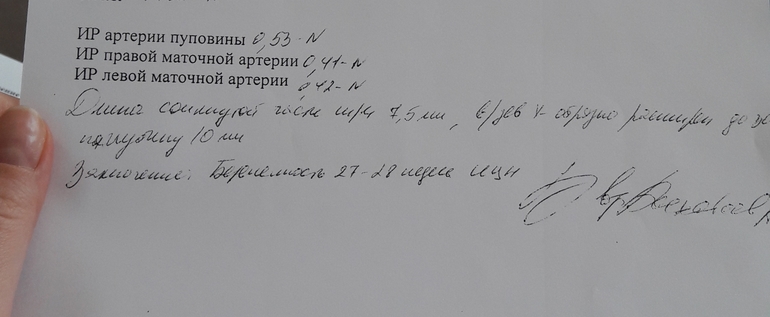 ИР артерии пуповины 0,53-N
ИР правой маточной артерии 0,41-N
ИР левой маточной артерии 0,42-N
Длина сомкнутой части ш/м 7,5 мм, в/зев V-образно расширен до
на глубину 10 мм
Заключение: Беременность 27-28 недель ИЦН